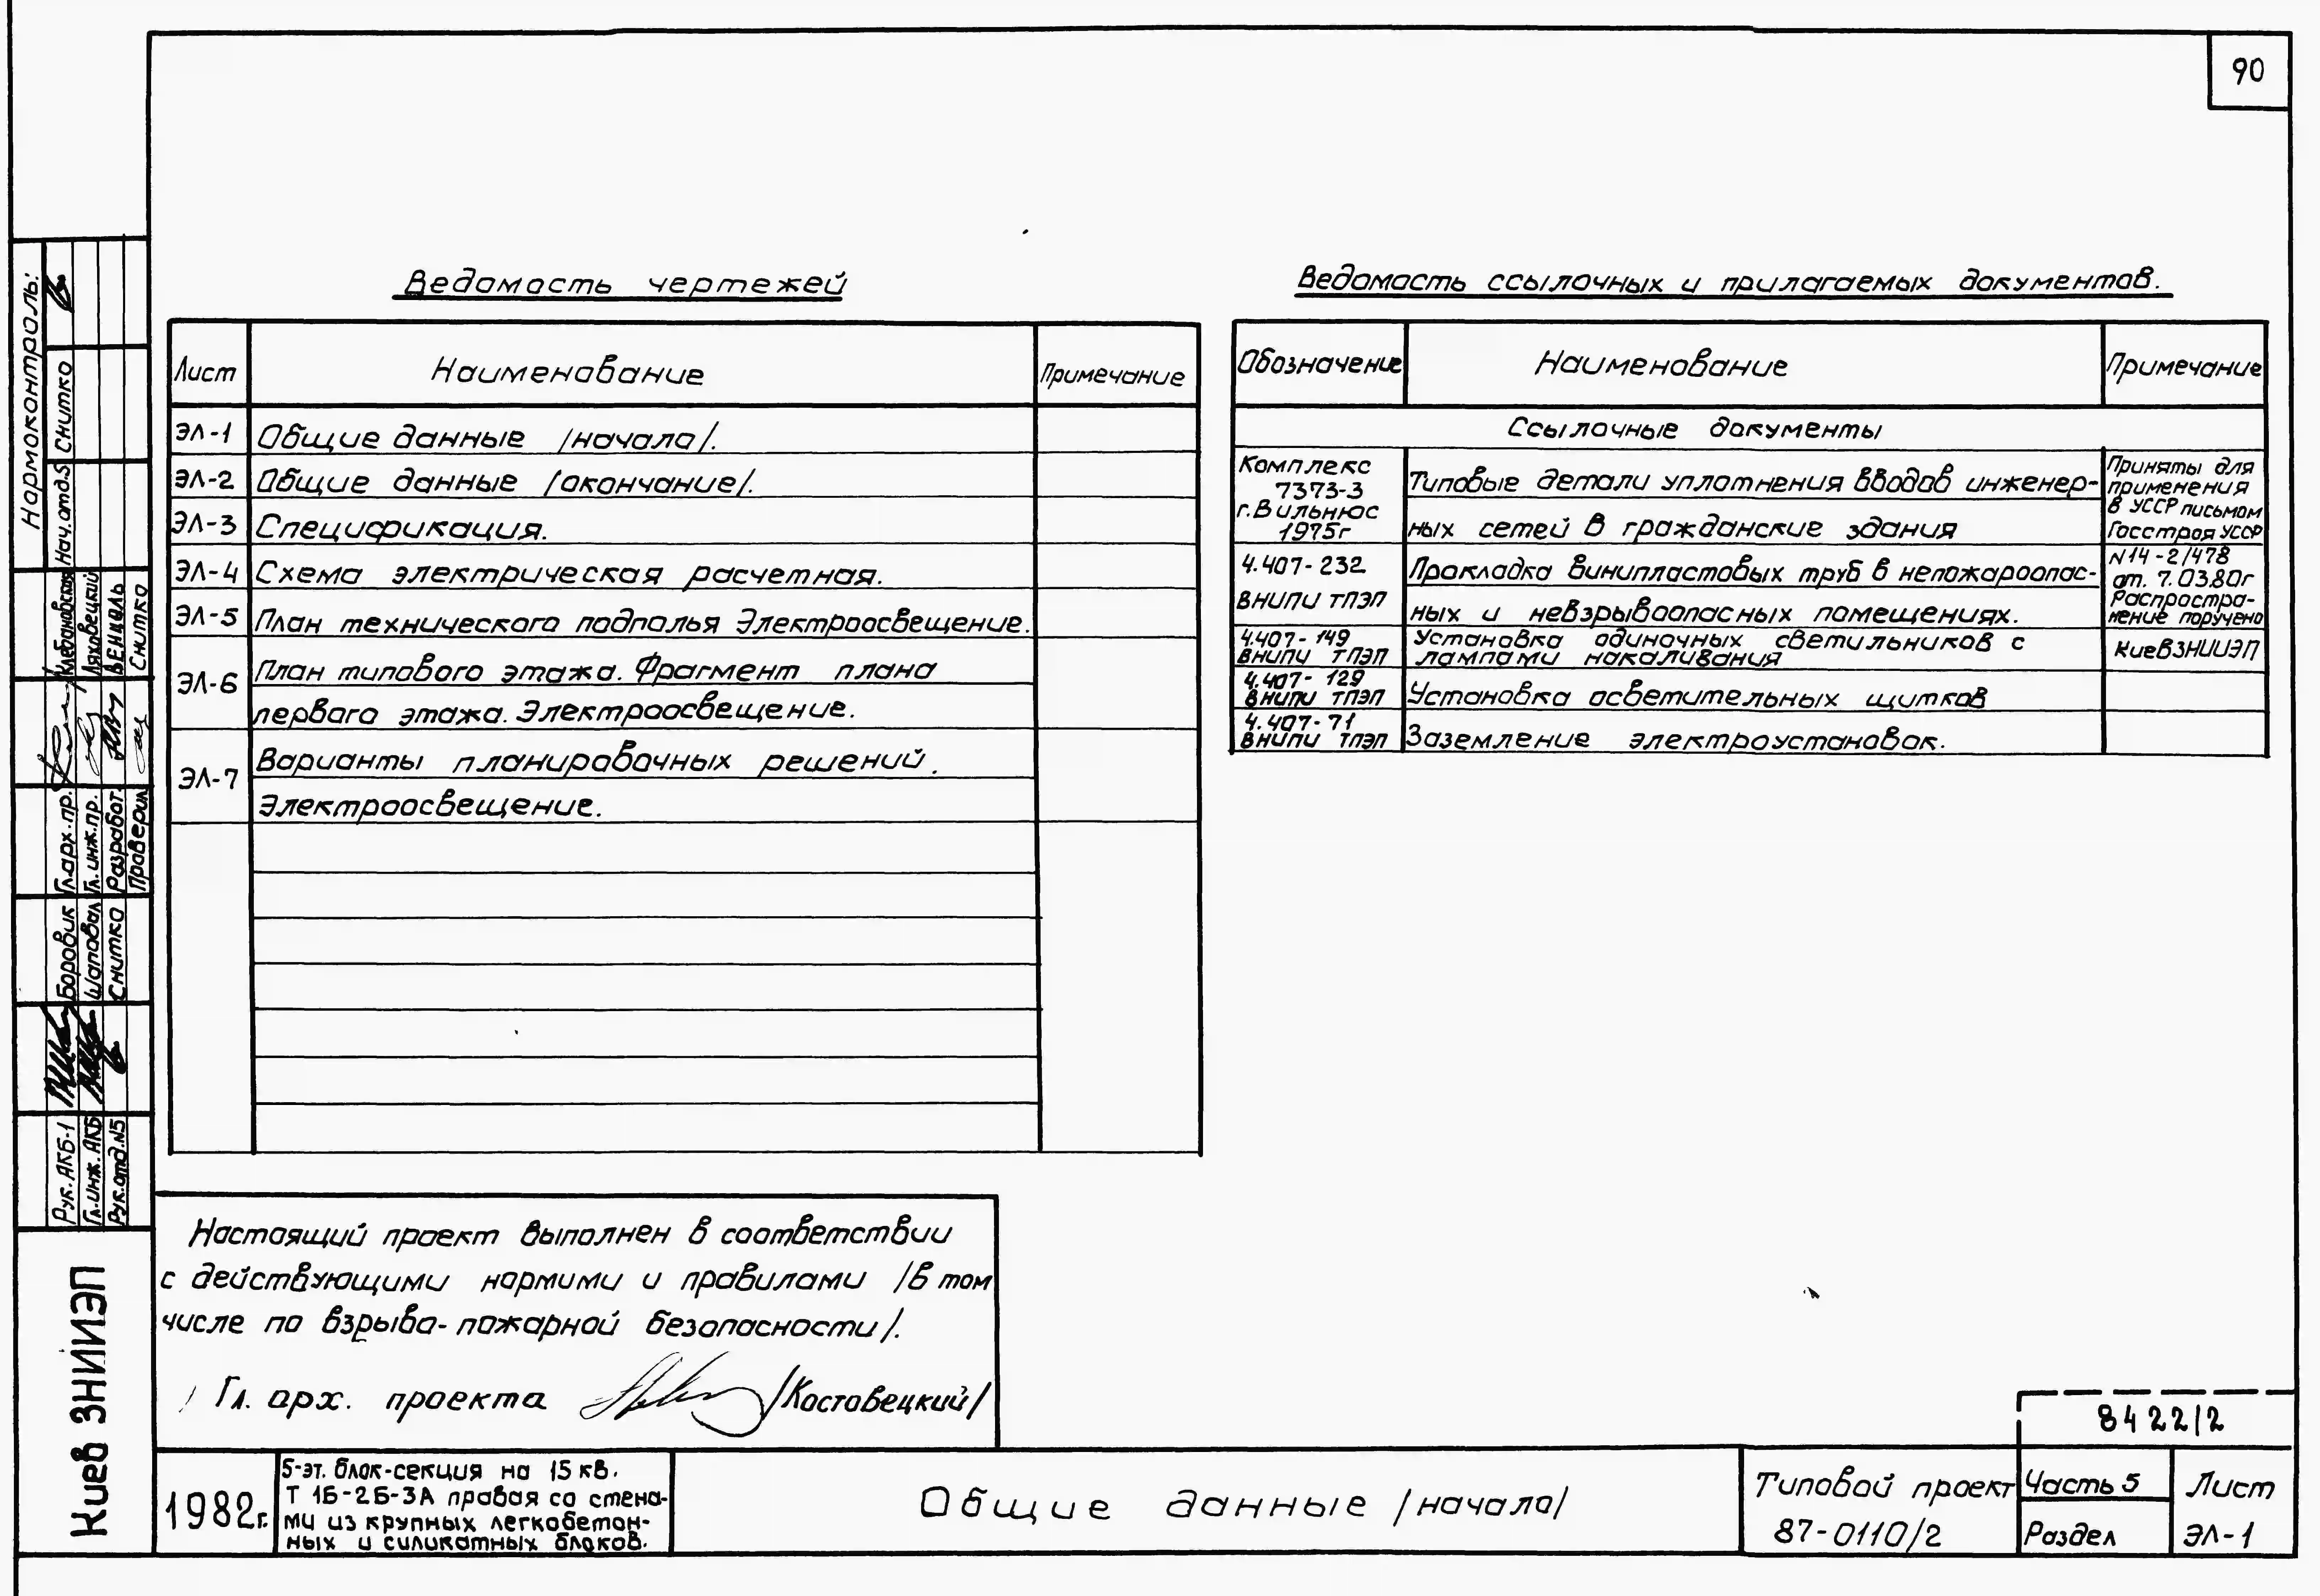 90
Ведомость чертежей
Лист
Наименование
Примечание
ЭЛ-1
Общие данные /начало/.
ЭЛ-2
Общие данные /окончание/.
ЭЛ-3
Спецификация.
ЭЛ-4
Схема электрическая расчетная.
ЭЛ-5
План технического подполья Электроосвещение.
ЭЛ-6
План типового этажа. Фрагмент плана
первого этажа. Электроосвещение.
ЭЛ-7
Варианты планировочных решений.
Электроосвещение.
Ведомость ссылочных и прилагаемых документов.
Обозначение
Наименование
Примечание
Ссылочные документы
Комплекс
7373-3
г.Вильнюс
1975г
Типовые детали уплотнения вводов инженер-
ных сетей в гражданские здания
Приняты для
применения
в УССР письмом
Госстроя УССР
N14-2/478
от. 7.03.80г
Распростра-
нение поручено
КиевЗНИИЭП
4.407-232
ВНИПИ ТПЭП
Прокладка винипластовых труб в непожароопас-
ных и невзрывоопасных помещениях.
4.407-149
ВНИПИ ТПЭП
Установка одиночных светильников с
лампами накаливания
4.407-129
ВНИПИ ТПЭП
Установка осветительных щитков
4.407-71
ВНИПИ ТПЭП
Заземление электроустановок.
Нормоконтроль:
Нач.отд.5 Снитко
Гл.арх.пр. Клебановская
Гл.инж.пр. Ляховецкий
Разработ. Венцель
Проверил Снитко
Рук.АКБ-1 Боровик
Гл.инж.АКБ Шаповал
Рук.отд.N5 Снитко
Киев ЗНИИЭП
Настоящий проект выполнен в соответствии
с действующими нормими и правилами /в том
числе по взрыво-пожарной безопасности/.
Гл. арх. проекта /Костовецкий/
1982г.
5-эт. блок-секция на 15 кв.
Т 1Б-2Б-3А правая со стена-
ми из крупных легкобетон-
ных и силикатных блоков.
Общие данные /начало/
8422/2
Типовой проект
87-0110/2
Часть 5
Раздел
Лист
ЭЛ-1